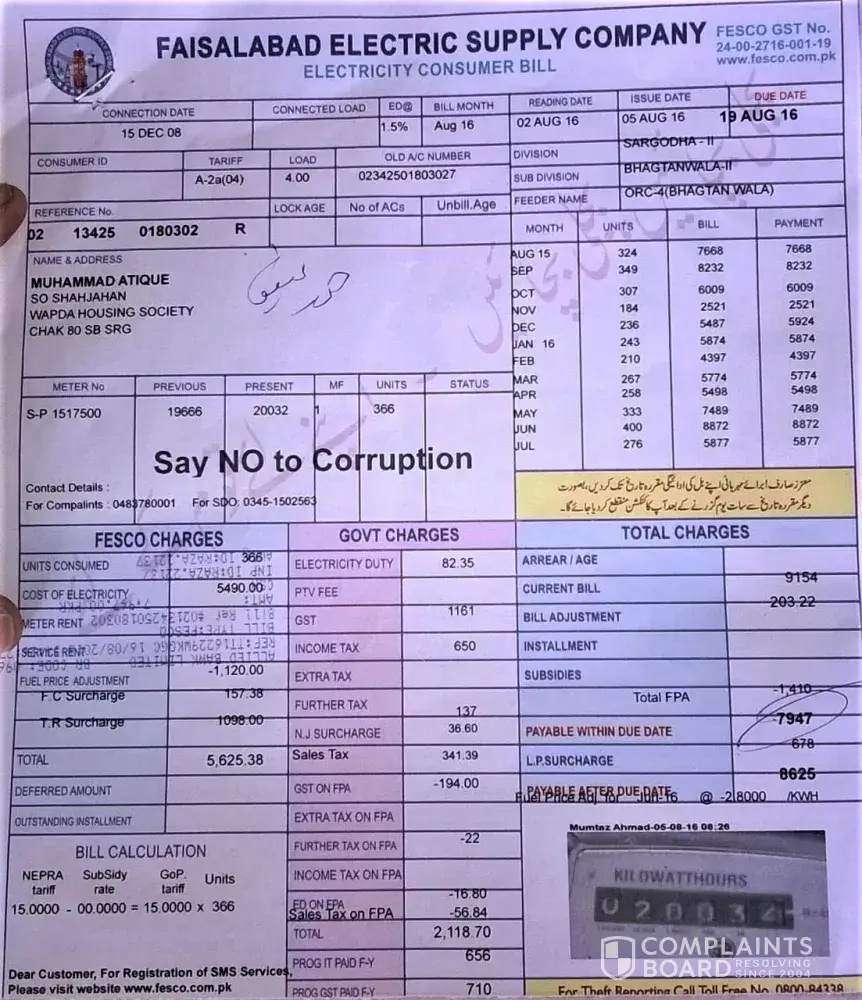 FAISALABAD ELECTRIC SUPPLY COMPANY
ELECTRICITY CONSUMER BILL
FESCO GST No.
24-00-2716-001-19
www.fesco.com.pk
CONNECTION DATE CONNECTED LOAD ED@ BILL MONTH READING DATE ISSUE DATE DUE DATE
15 DEC 08 1.5% Aug 16 02 AUG 16 05 AUG 16 19 AUG 16
CONSUMER ID TARIFF LOAD OLD A/C NUMBER
A-2a(04) 4.00 02342501803027
DIVISION SARGODHA - II
SUB DIVISION BHAGTANWALA-II
FEEDER NAME ORC-4(BHAGTAN WALA)
REFERENCE No. LOCK AGE No of ACs Unbill.Age
02 13425 0180302 R
NAME & ADDRESS
MUHAMMAD ATIQUE
SO SHAHJAHAN
WAPDA HOUSING SOCIETY
CHAK 80 SB SRG
MONTH UNITS BILL PAYMENT
AUG 15 324 7668 7668
SEP 349 8232 8232
OCT 307 6009 6009
NOV 184 2521 2521
DEC 236 5487 5924
JAN 16 243 5874 5874
FEB 210 4397 4397
MAR 267 5774 5774
APR 258 5498 5498
MAY 333 7489 7489
JUN 400 8872 8872
JUL 276 5877 5877
METER No PREVIOUS PRESENT MF UNITS STATUS
S-P 1517500 19666 20032 1 366
Say NO to Corruption
Contact Details :
For Compalints : 0483780001 For SDO: 0345-1502563
معزز صارف! برائے مہربانی اپنے بل کی ادائیگی مقررہ تاریخ تک کر دیں، بصورت
دیگر مقررہ تاریخ سے سات یوم گزرنے کے بعد آپ کا کنکشن منقطع کر دیا جائے گا۔
FESCO CHARGES
UNITS CONSUMED 366
COST OF ELECTRICITY 5490.00
METER RENT
SERVICE RENT
FUEL PRICE ADJUSTMENT -1,120.00
F.C Surcharge 157.38
T.R Surcharge 1098.00
TOTAL 5,625.38
DEFERRED AMOUNT
OUTSTANDING INSTALLMENT
ALLIED BANK LIMITED
BILL TYPE:FESCO
GOVT CHARGES
ELECTRICITY DUTY 82.35
PTV FEE
GST 1161
INCOME TAX 650
EXTRA TAX
FURTHER TAX 137
N.J SURCHARGE 36.60
Sales Tax 341.39
GST ON FPA -194.00
EXTRA TAX ON FPA
FURTHER TAX ON FPA -22
INCOME TAX ON FPA
ED ON FPA -16.80
Sales Tax on FPA -56.84
TOTAL 2,118.70
PROG IT PAID F-Y 656
PROG GST PAID F-Y 710
TOTAL CHARGES
ARREAR / AGE
CURRENT BILL 9154
BILL ADJUSTMENT 203.22
INSTALLMENT
SUBSIDIES
Total FPA -1,410
PAYABLE WITHIN DUE DATE 7947
L.P.SURCHARGE 678
PAYABLE AFTER DUE DATE 8625
Fuel Price Adj for Jun-16 @ -2.8000 /KWH
BILL CALCULATION
NEPRA tariff SubSidy rate GoP. tariff Units
15.0000 - 00.0000 = 15.0000 x 366
Dear Customer, For Registration of SMS Services,
Please visit website www.fesco.com.pk
Mumtaz Ahmad-05-08-16 08:26
KILOWATTHOURS
020034
COMPLAINTS
BOARD RESOLVING SINCE 2004
For Theft Reporting Call Toll Free No. 0800-84338